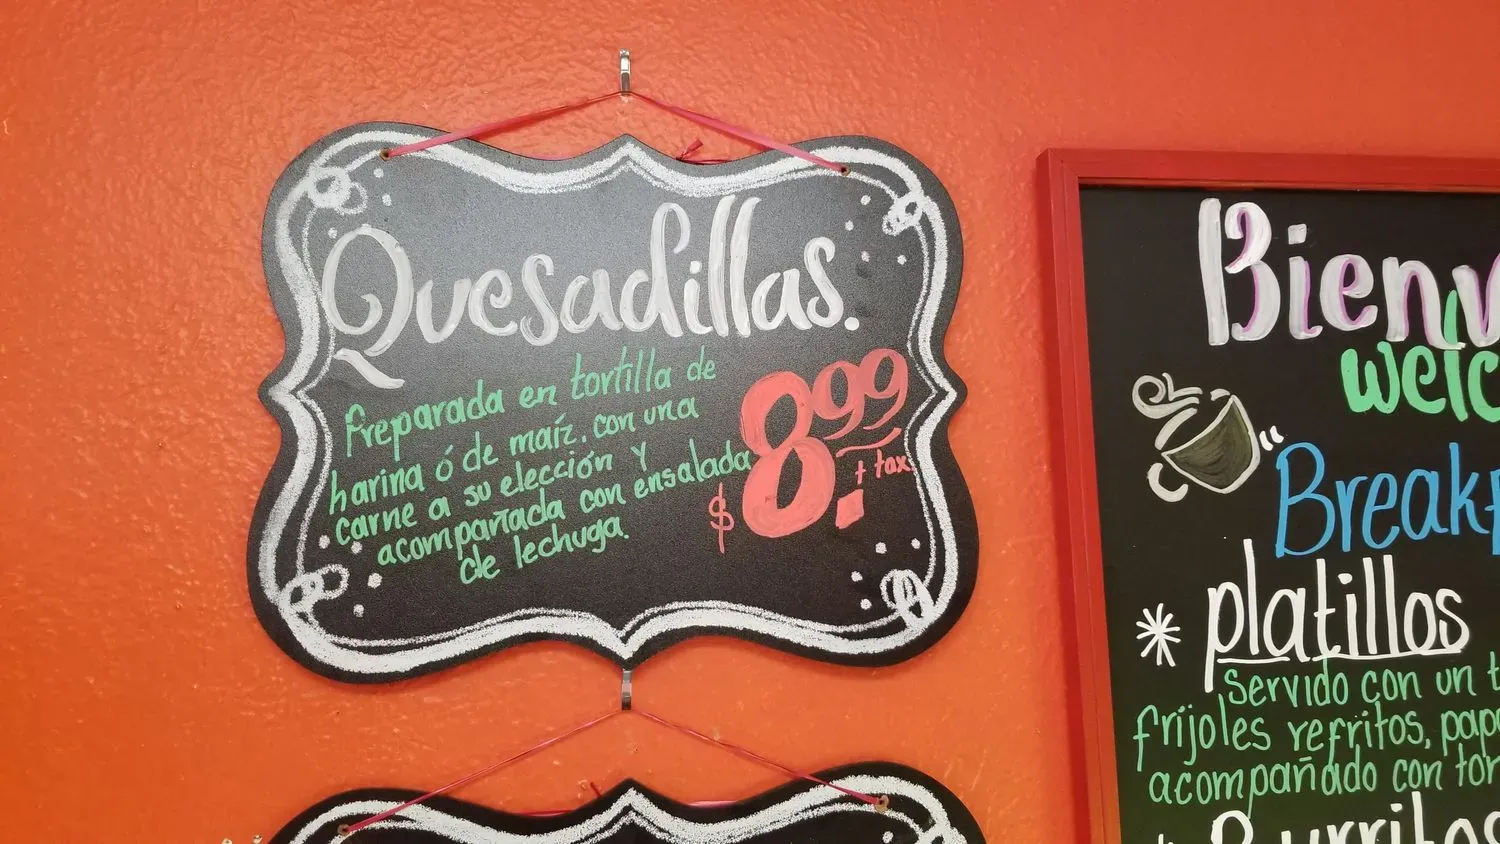 Quesadillas.
Preparada en tortilla de
harina ó de maíz. con una
carne a su elección y
acompañada con ensalada
de lechuga.
$8.99
+ tax
Bienv
welc
Breakf
platillos
servido con un t
frijoles refritos, papa
acompañado con tor
Burritos